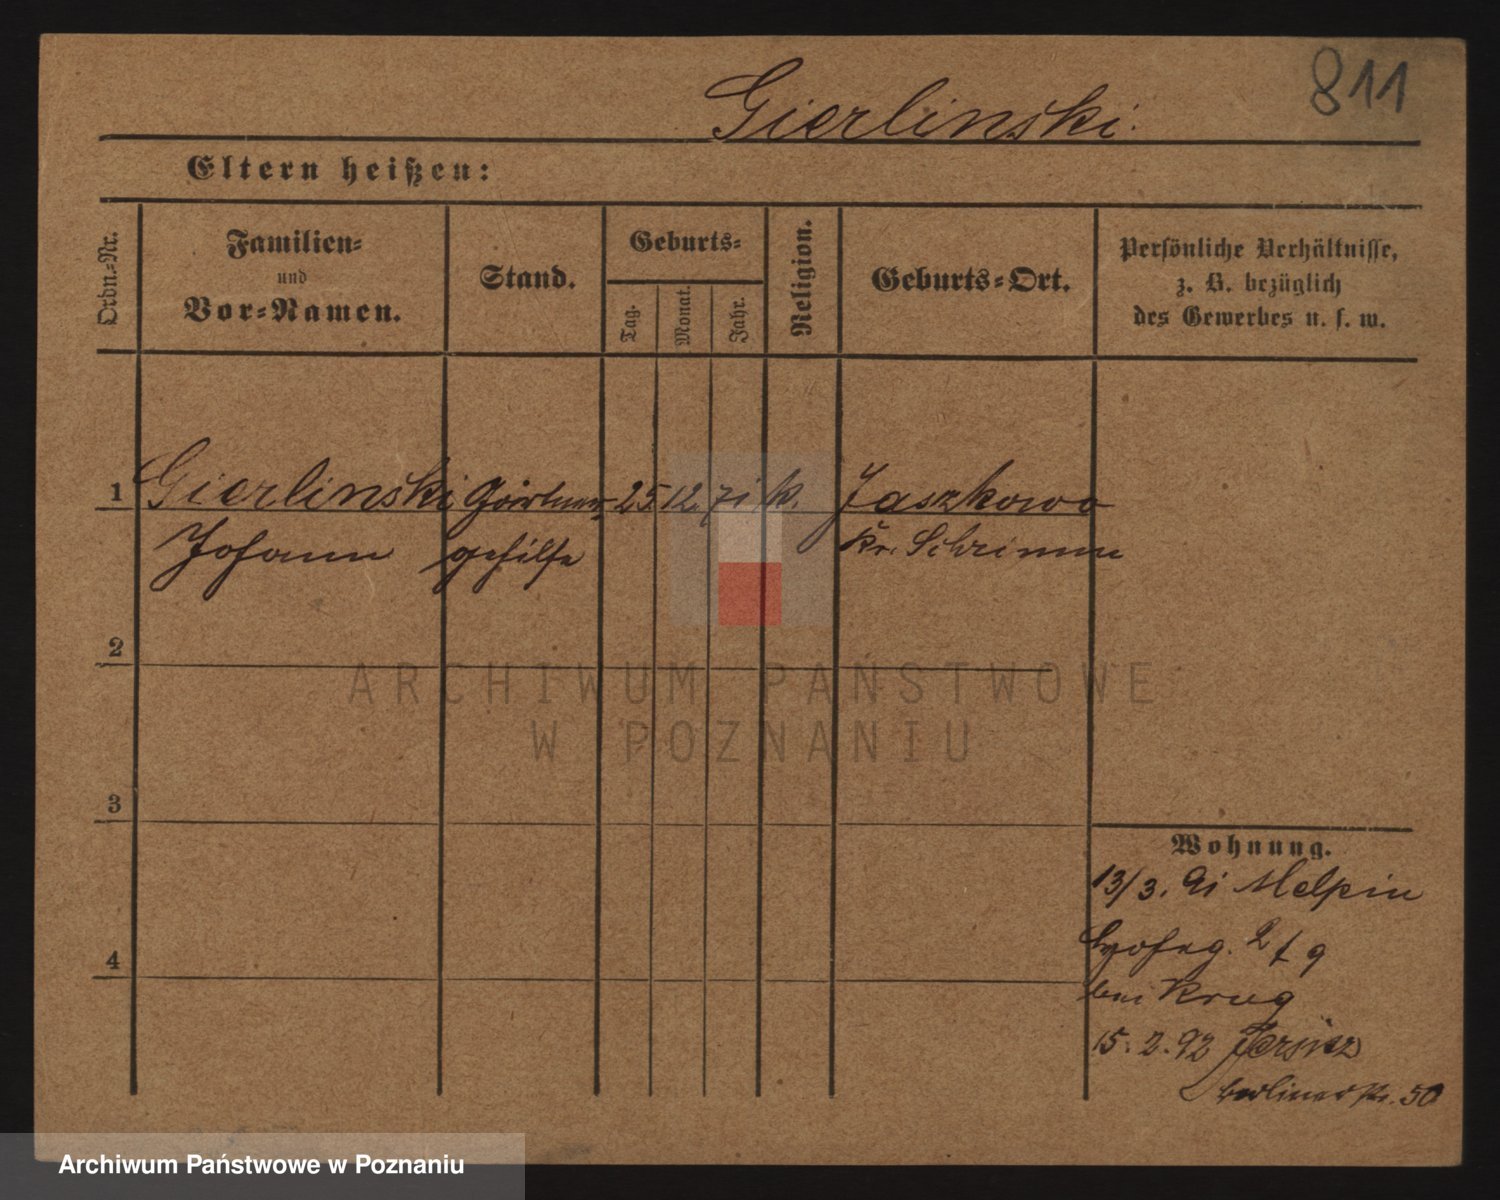 811
Gierlinski.
Eltern heißen:
Ordn.-Nr.
Familien-
und
Vor-Namen.
Stand.
Geburts-
Tag.
Monat.
Jahr.
Religion.
Geburts-Ort.
Persönliche Verhältnisse,
z. B. bezüglich
des Gewerbes u. s. w.
1 Gierlinski Gärtner- 25 12. 71 k. Jaszkowo
Johann gehilfe Kr. Schrimm
2
3
4
Wohnung.
13/3. 91 Melpin
2/9
bei Krug
15. 2. 92 Jersitz
Berlinerstr. 50
ARCHIWUM PAŃSTWOWE
W POZNANIU
Archiwum Państwowe w Poznaniu